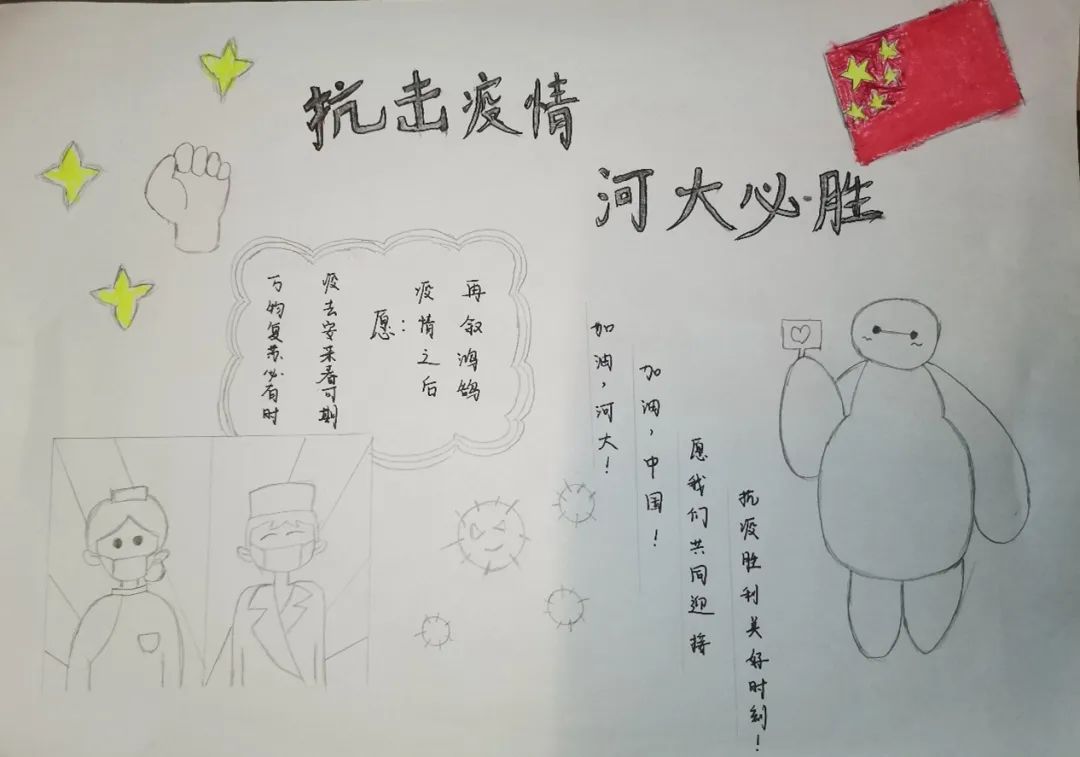 抗击疫情
河大必胜
万物复苏必有时
疫去安来春可期
愿：
疫情之后
再叙鸿鹄
加油，河大！
加油，中国！
愿我们共同迎接
抗疫胜利美好时刻！